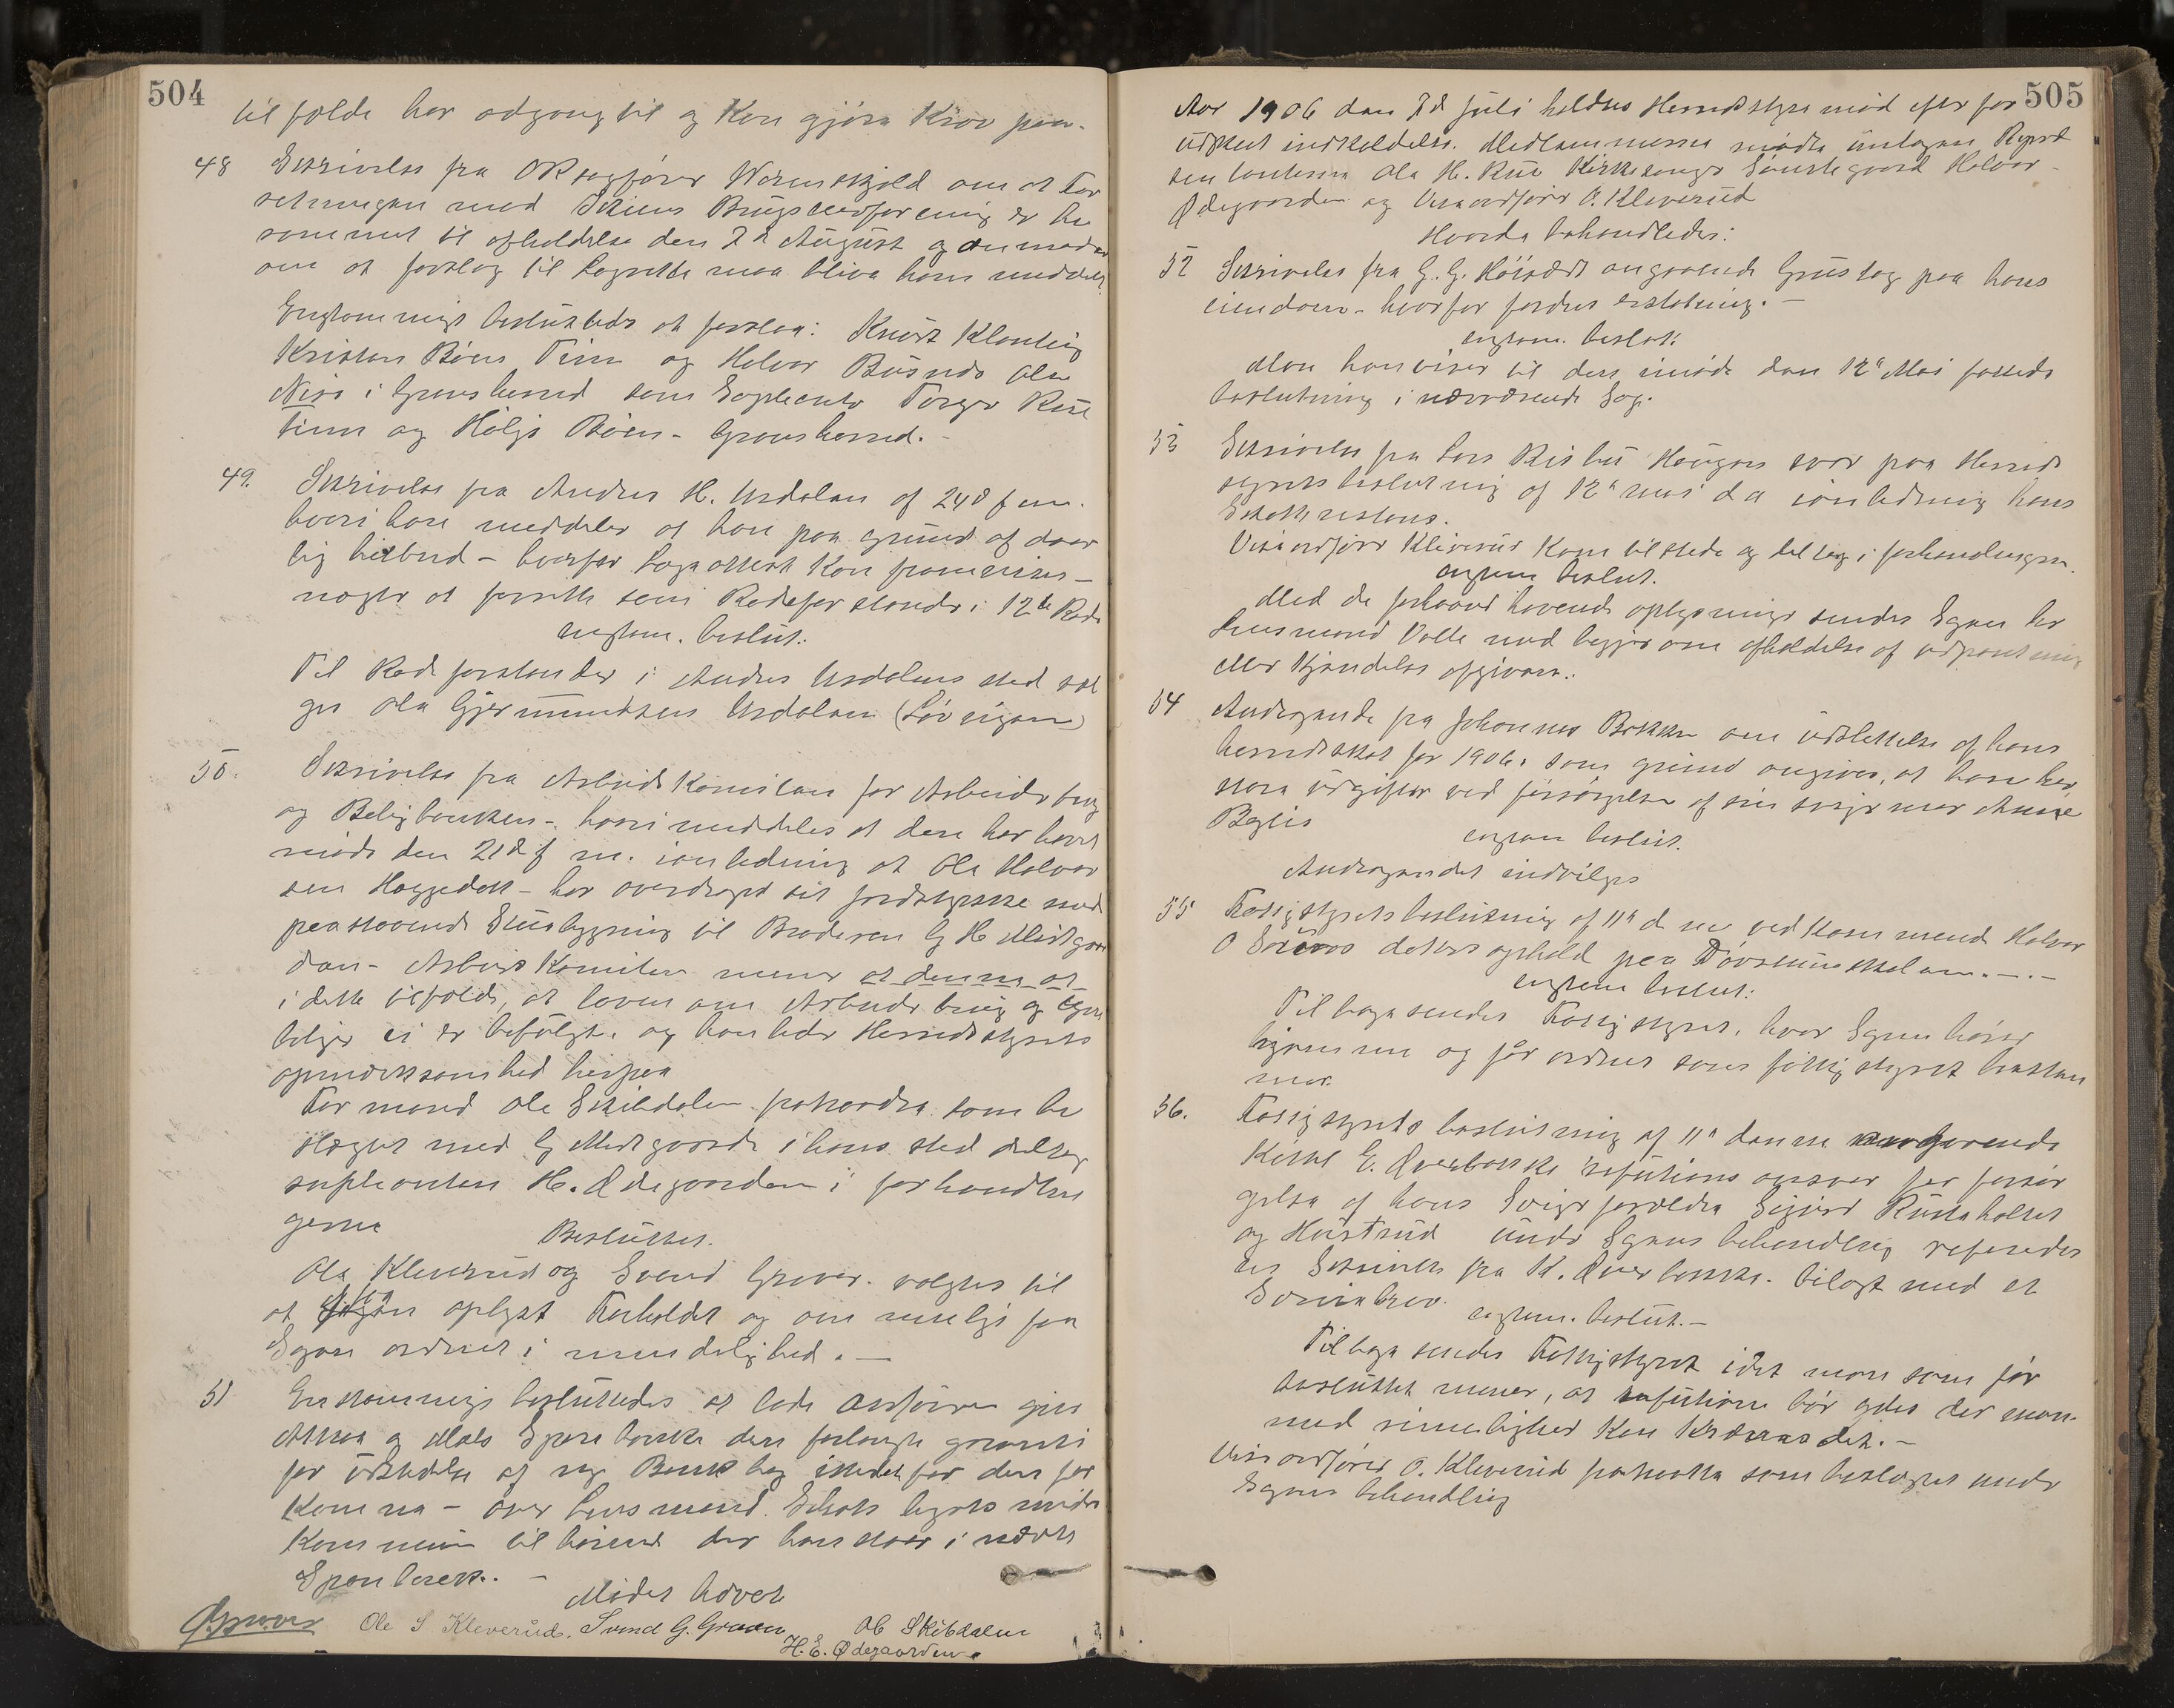 504
til fælde har adgang til og Kan gjøra Krav paa.
48 Skrivelse fra ORsagfører Werenskjold om at For
retningen med Skiens Brugseierforening er be
rammet til afholdelse den 2d August og anmoder
om at forslag til Lagrette maa bliva ham meddelt.
Enstemmigt besluttedes at foreslaa: Knut
Kristen Bøen Tinn og Halvor Busnes Ole
i Gransherred som Suplenter Torger Rue
Tinn og Bøen - Gransherred. -
49. Skrivelse fra Andres H. Urdalen af 24d f m.
hvori han meddeler at han paa grund af daar
lig helbred - hvorfor Lægeattest Kan fremvises -
negter at forsette som Rodeforstander i 12te Rode
enstem. beslut:
Til Rodeforstander i Andres Urdalens sted væl
ges Ola Gjermundsen Urdalen
50. Skrivelse fra ArbeidsKomiteen for Arbeiderbrug
og Boligbanken - hvori meddeles at den har havt
møde den 21d f m. ianledning at Ole Halvor
sen - har overdraget sit jordstykke med
paastaaende Stuebygning til Broderen G H Midtgaar
den - ArbeidsKomiteen mener at denne at
i dette tilfælde, at loven om Arbeiderbrug og
boliger ei er befulgt. og henleder Herredsstyrets
opmærksomhed herpaa
Formand Ole Skibdalen fratraadte som be
slægtet med G Midtgaarden i hans sted deltog
suplenten H. Ødegaarden i forhandlin
gerne
Besluttet.
Ola Kleverud og Svend Graver. valgtes til
at faa oplyst Forholdet og om muligt faa
Sagen ordnet i mindelighed. -
51 Enstemmigt besluttedes at lade Ordføren give
Atraa og Mæls Sparebanke den forlangte garanti
for udstedelse af ny Bankbog istedet for den for
Komne - over Lensmand Schaks legats midler
Kommunen tilhørende der han staar i nævnte
Sparebank. -
Mødet hævet
Ole S Kleverud. Svend G. Graver OC Skibdalen
H.E. Ødegaarden
505
Aar 1906 den 7d Juli holdtes Herredsstyremød efter for
udskeet indkaldelse. Medlemmerna mødte undtagen Repræ
sentanterna Ola H. Rue Kirkesanger Sønstegaard Halvor
Ødegaarden og Viseordfører O. Kleverud
Hvorda behandledes:
52 Skrivelse fra G. G. angaaende Grustag paa hans
eiendom - hvorfor fordres erstatning. -
enstem. beslut:
Man henviser til den imøde den 12d Mai fattede
beslutning i nærværende Sag.
53 Skrivelse fra Lars Haugens svar paa Herreds
styrets beslutning af 12d mai d a ianledning hans
Skatterestans.
Viseordfører Kleverud Kom tilstede og deltog i forhandlingen.
enstem beslut.
Med de forhaand havende oplysninger sendes Sagen hr
Lensmand Valle med begjær om afholdelse af udpantning
eller Kjendelse afgivern.
54 Andragande fra Johannes Bakken om udslettelse af hans
herredsskat for 1906. som grund angives, at han har
stora udgifter ved forsørgelse af sin svigermor Anne
Bøglis
enstem beslut.
Andragandet indvilges
55 Fattigstyrets beslutning af 11d d m vedkommende Halvor
O datters ophold paa Døvstumskolen. - . -
enstem beslut:
Tilbagesendes Fattigstyret, hvor Sagen hører
hjemme og før ordnet som fattigstyret bestem
mer.
56. Fattigstyrets beslutning af 11d dennes angaaende
E. refutions ansvar for forsør
gelse af hans Svigerforældre Sigurd
og Hustrud under Sagens behandling refereredes
en Skrivelse fra K. bilagt med et
enstem. beslut. -
Tilbagesendes Fattigstyret idet man som før
besluttet mener, at refution bør ydes der man
med rimelighed Kan Kræves det. -
Viseordfører O. Kleverud fratraatte som beslægtet under
Sagens behandling